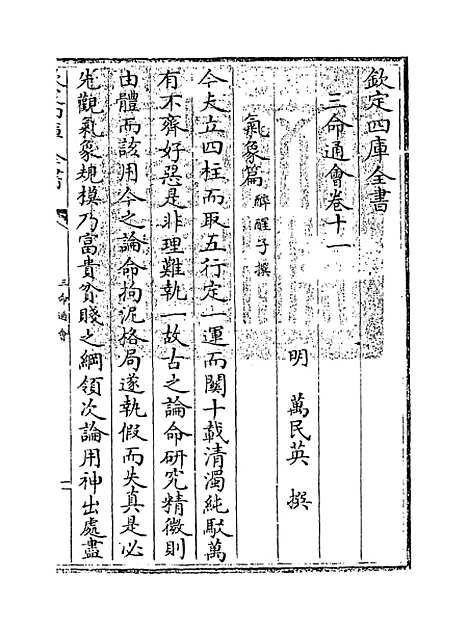 欽定四庫全書
三命通會卷十一
明 萬民英 撰
氣象篇 醉醒子撰
今夫立四柱而取五行定一運而關十載清濁純駁萬
有不齊好惡是非理難執一故古之論命研究精微則
由體而該用今之論命拘泥格局遂執假而失真是必
先觀氣象規模乃富貴貧賤之綱領次論用神出處盡
三命通會
一